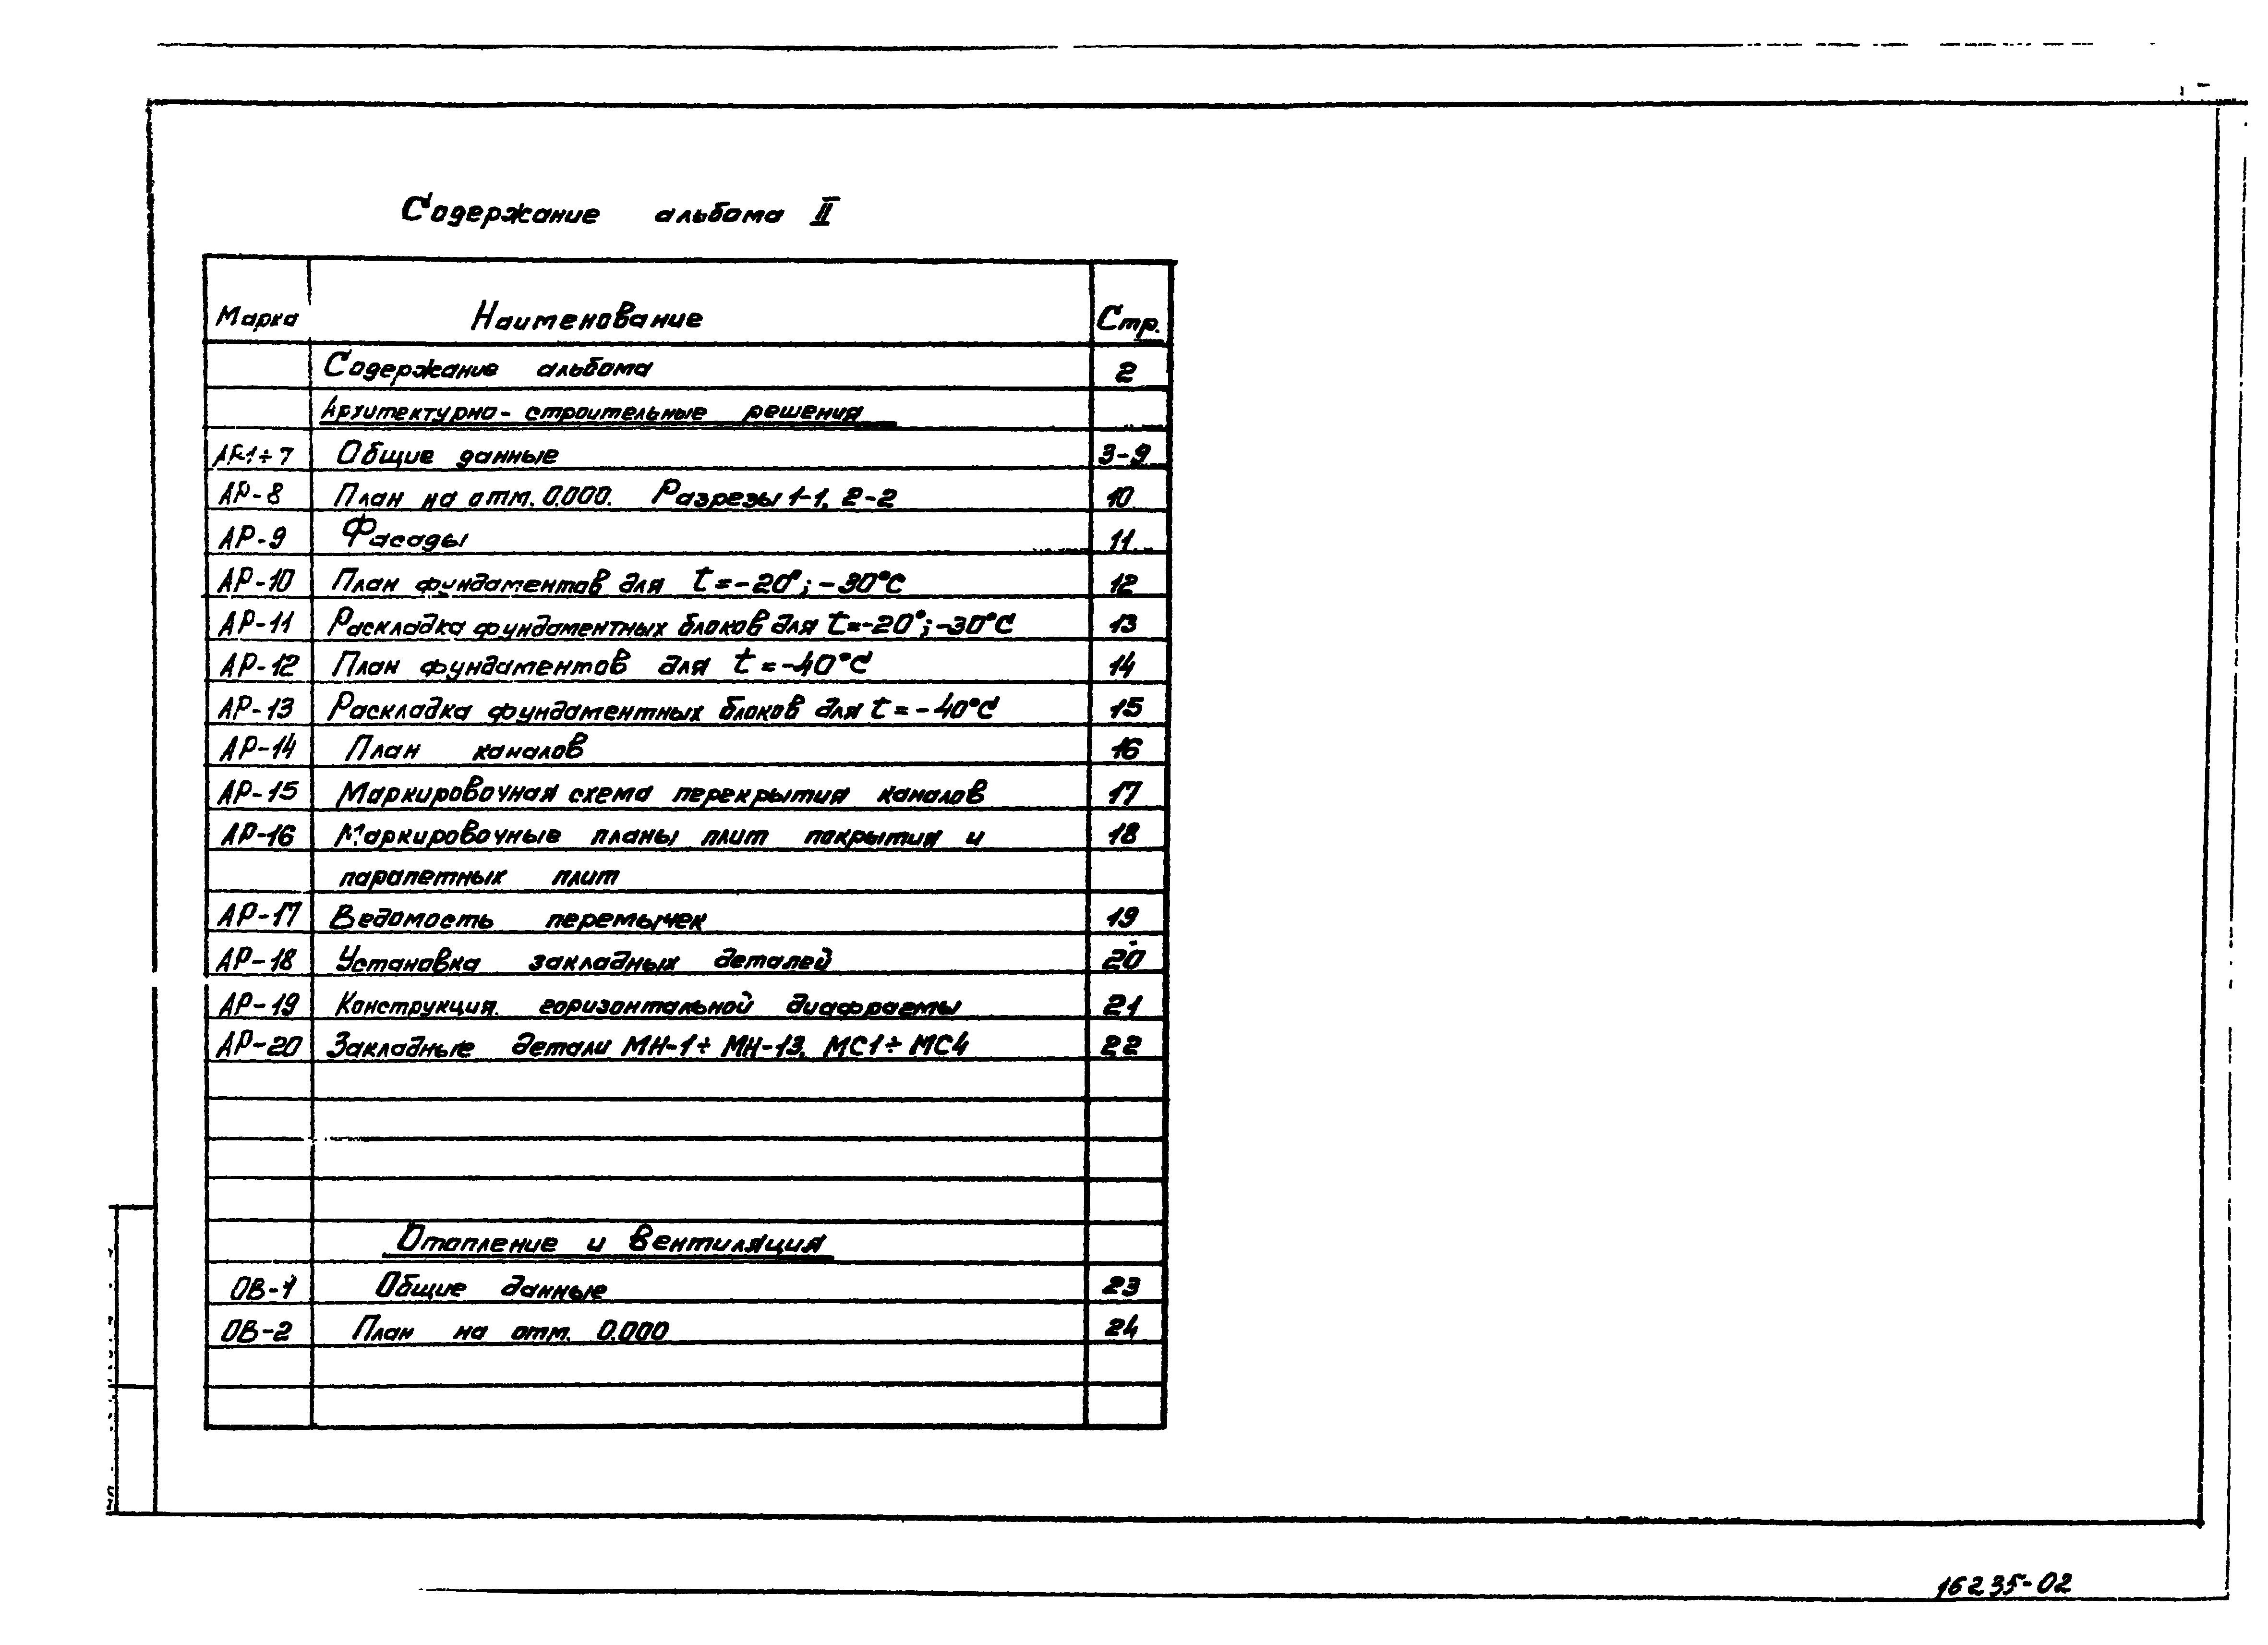 Содержание альбома II
Марка Наименование Стр.
Содержание альбома 2
Архитектурно-строительные решения
АР-1÷7 Общие данные 3-9
АР-8 План на отм. 0.000. Разрезы 1-1, 2-2 10
АР-9 Фасады 11
АР-10 План фундаментов для t=-20°; -30°С 12
АР-11 Раскладка фундаментных блоков для t=-20°; -30°С 13
АР-12 План фундаментов для t=-40°С 14
АР-13 Раскладка фундаментных блоков для t=-40°С 15
АР-14 План каналов 16
АР-15 Маркировочная схема перекрытия каналов 17
АР-16 Маркировочные планы плит покрытия и 18
парапетных плит
АР-17 Ведомость перемычек 19
АР-18 Установка закладных деталей 20
АР-19 Конструкция горизонтальной диафрагмы 21
АР-20 Закладные детали МН-1÷МН-13, МС1÷МС4 22
Отопление и вентиляция
ОВ-1 Общие данные 23
ОВ-2 План на отм. 0.000 24
16235-02